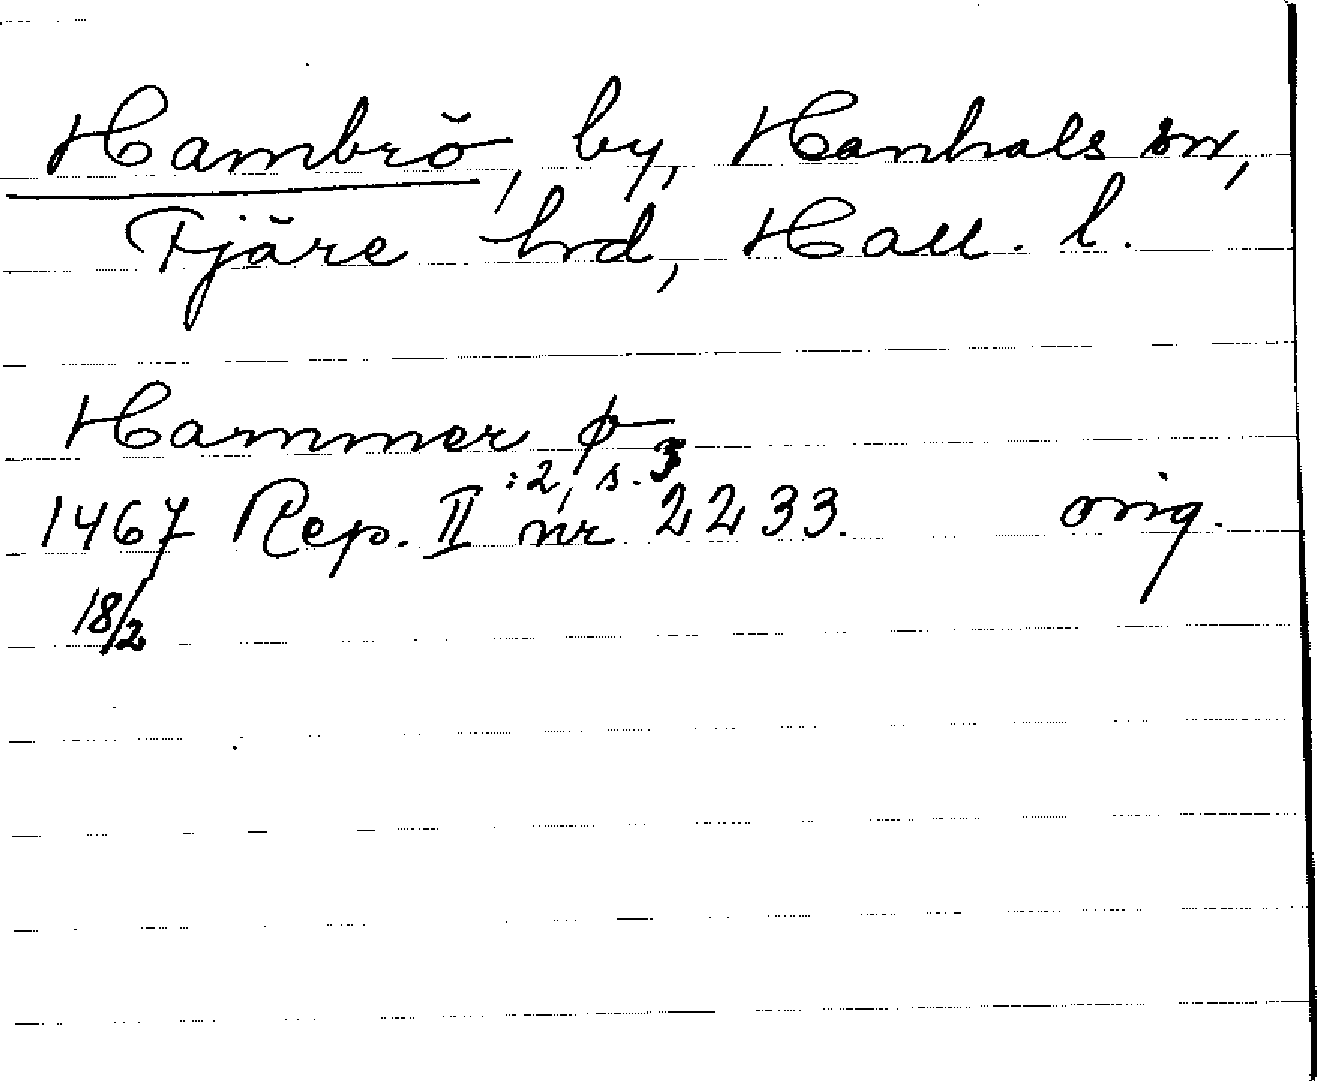 Hambrö, by, Hanhals sn,
Fjäre hrd, Hall. l.
Hammer
:2, s. 3
1467 Rep. II nr 2233. orig.
18/2